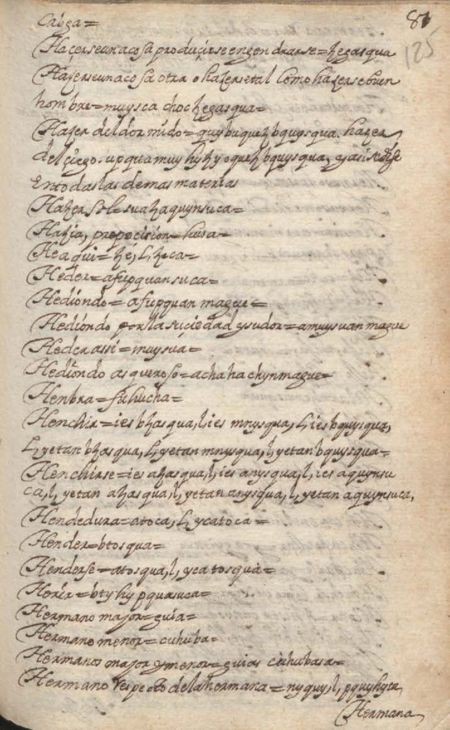 81
125
Haçerse una cosa produçirse engendrarse= hęgasqua
Haçerse una cosa otra o haçerse tal como haçerse buen
hombre= muysca choc hęgasqua=
Haçer del dormido= quybuquez bquysqua. haçer
del çiego. upqua muyhyzyoquez bquysqua, y asi
en todas las demas materias
Haçer sol= sua zaquynsuca=
Hazia, preposicion= husa=
He aqui= zé, l, zeca=
Heder= afupquansuca=
Hediondo= afupquan mague=
Hediondo por la suciedad y sudor= amuysuan mague
Heder assi= muysua=
Hediondo asqueroso= achahachyn mague=
Henbra= fuhucha=
Henchir= ies bzasqua, l, ies mnysqua, l, ies bquysqua,
l, yetan bzasqua, l, yetan mnysqua, l, yetan bquysqua=
Henchirse= ies azasqua, l, ies anysqua, l, ies aquynsu
ca, l, yetan azasqua, l, yetan anysqua, l, yetan aquynsuca,
Hendedura= atoca, l, ycatoca=
Hender= btosqua=
Henderse= atosqua, l, ycatosqua=
Herir= btyhypquasuca=
Hermano major= guia=
Hermano menor= cuhuba=
Hermanos major y menor= guias cuhubasa=
Hermano respecto de la hermana= nyquy, l, pquyhyta
Hermana